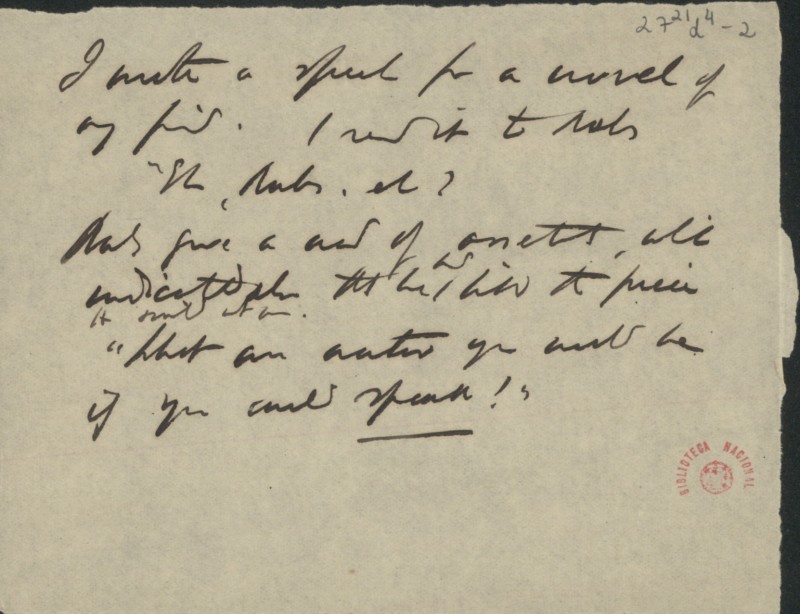 27²¹ d⁴-2
I wrote a speech for a novel of
my friend. I read it to Rabs
"Eh, Rabs, eh?
Rabs gave a nod of assent, which
indicated also that he had liked the piece
"What an orator you would be
if you could speak!"
BIBLIOTECA NACIONAL